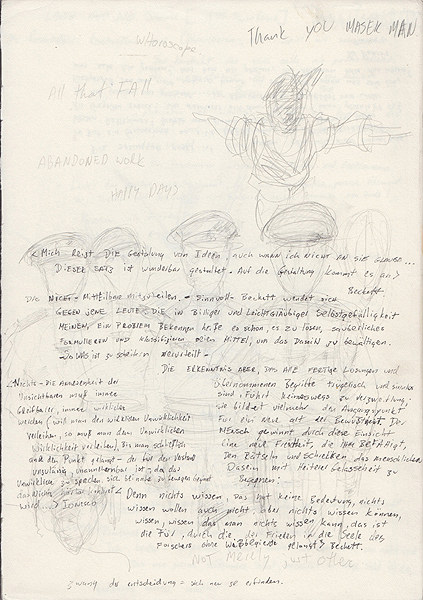 Thank you MASEK MAN
Whoroscope
All that FALL
ABANDONED work
HAPPY DAYS
<Mich reizt die Gestaltung von Ideen, auch wenn ich nicht an sie glaube...
Dieser Satz ist wunderbar gestaltet - Auf die Gestaltung kommt es an>
Beckett
Das Nicht-Mitteilbare mitzuteilen. - Sinnvoll - Beckett wendet sich
GEGEN JENE LEUTE, DIE in Billiger und Leichtgläubiger Selbstgefälligkeit
MEINEN, EIN PROBLEM Bekennen heiße es schon, es zu lösen, säuberliches
Formulieren und Klassifizieren seien Mittel, um das Dasein zu bewältigen.
DIE ERKENNTNIS ABER, DAS ALLE FERTIGE LOSUNGEN und
übernommenen Begriffe trügerisch und
sind, führt keineswegs zu Verzweiflung;
sie bildet vielmehr den Ausgangspunkt
Für eine neue Art der Bewußtheit. Der
Mensch gewinnt durch diese Einsicht
eine neue Freiheit, die ihm BEFÄHIGT,
Den Rätseln und Schrecken des menschlichen
Dasein mit Heiterer Gelassenheit zu
Begegnen;
<Nichts - Die Anwesenheit des
Unsichtbaren muß immer
Greifbarer, immer wirklicher
werden (will man den wirklichen Unwirklichkeit
Verleihen, so muß man dem Unwirklichen
Wirklichkeit verleihen), Bis man schließlich
zu dem Punkt gelangt - der für den Verstand
unzulässig, unannehmbar ist -, da das
Unwirkliche zu sprechen, sich beinahe zu bewegen beginnt
das Nichts
wird...> Ionesco
< Denn nichts wissen, das hat keine Bedeutung, nichts
wissen wollen auch nicht, aber nichts wissen können,
wissen, wissen das man nichts wissen kann, das ist
die Tür, durch die der Frieden in die Seele des
Forschers ohne Wißbegierde gelangt> Beckett.
NOT MERELY, just other
Zwang der entscheidung = sich neu zu erfinden.